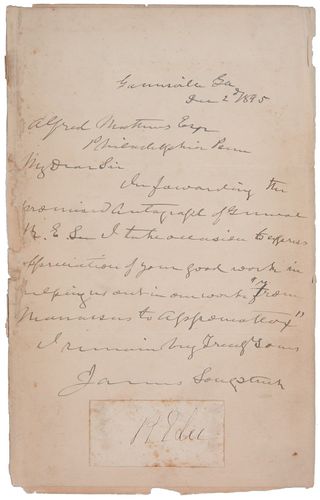 Gainesville Ga
Dec 2d 1895
Alfred Mathews Esqr
Philadelphia Penn
My Dear Sir
In forwarding the
promised Autograph of General
R. E. Lee I take occasion to express
appreciation of your good work in
helping us out in our work "From
Manassas to Appomattox"
I remain Very Truly Yours
James Longstreet
R E Lee